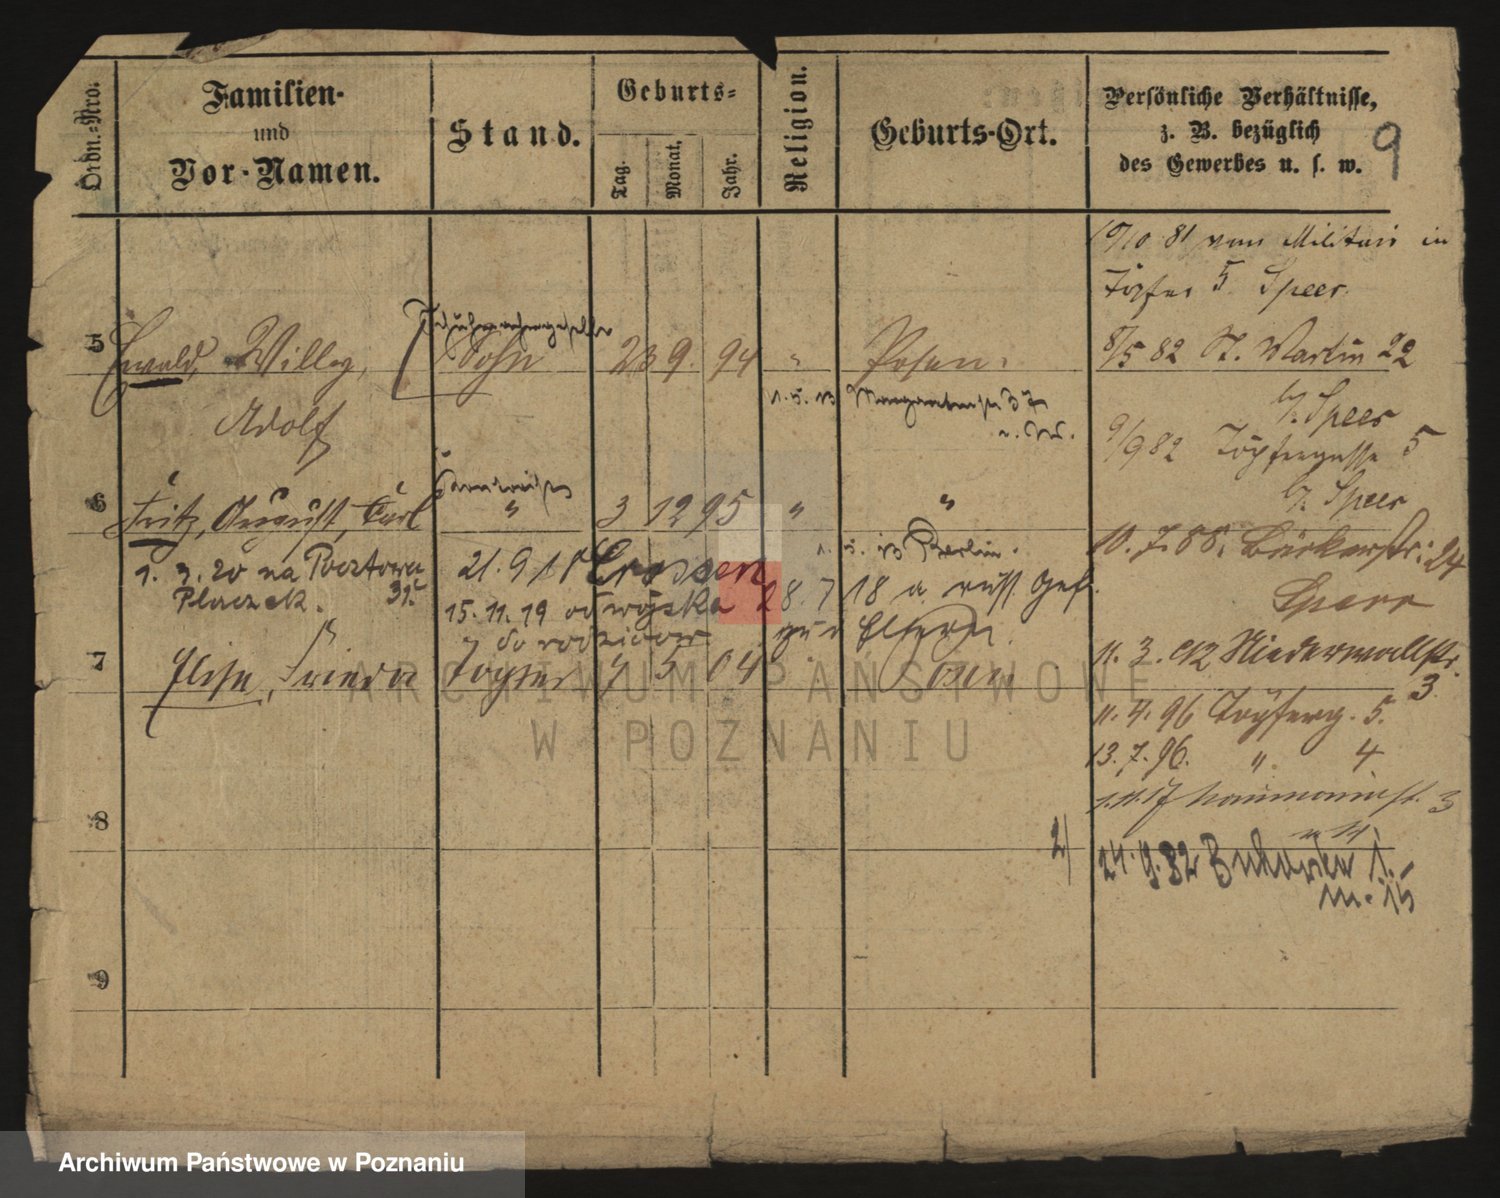 Ordn.-Nro.
Familien-
und
Vor-Namen.
Stand.
Geburts-
Tag.
Monat.
Jahr.
Religion.
Geburts-Ort.
Persönliche Verhältnisse,
z. B. bezüglich
des Gewerbes u. s. w.
9
10 81 vom Militair in
Töpfer 5 Speer
5 Ewald, Willy, Sohn 23 9. 94 " Posen.
8/5 82 St. Martin 22
b/ Speer
Adolf
1. 5. 13 37
9/9 82 Töpfergasse 5
b/ Speer
6 Fritz, August, Carl " 3 12 95 " "
1. 5. 13 Berlin.
10. 7. 88. Bäckerstr. 24
1. 3. 20 na Pocztowa 31.
Placzek.
21. 9. 18 Crossen
28. 7 18 a. russ. Gef.
15. 11. 19 od wojska
do rodziców
zu d Eltern
7 Elise, Frieda Tochter 4 5 04 Posen
11. 3. 92 Niederwallstr. 3
11. 4. 96 Töpferg. 5.
13. 7. 96. " 4
1. 11. 17 Naumannstr. 3
8
2) 24. 9. 32 1.
m. 15
9
ARCHIWUM PAŃSTWOWE
W POZNANIU
Archiwum Państwowe w Poznaniu